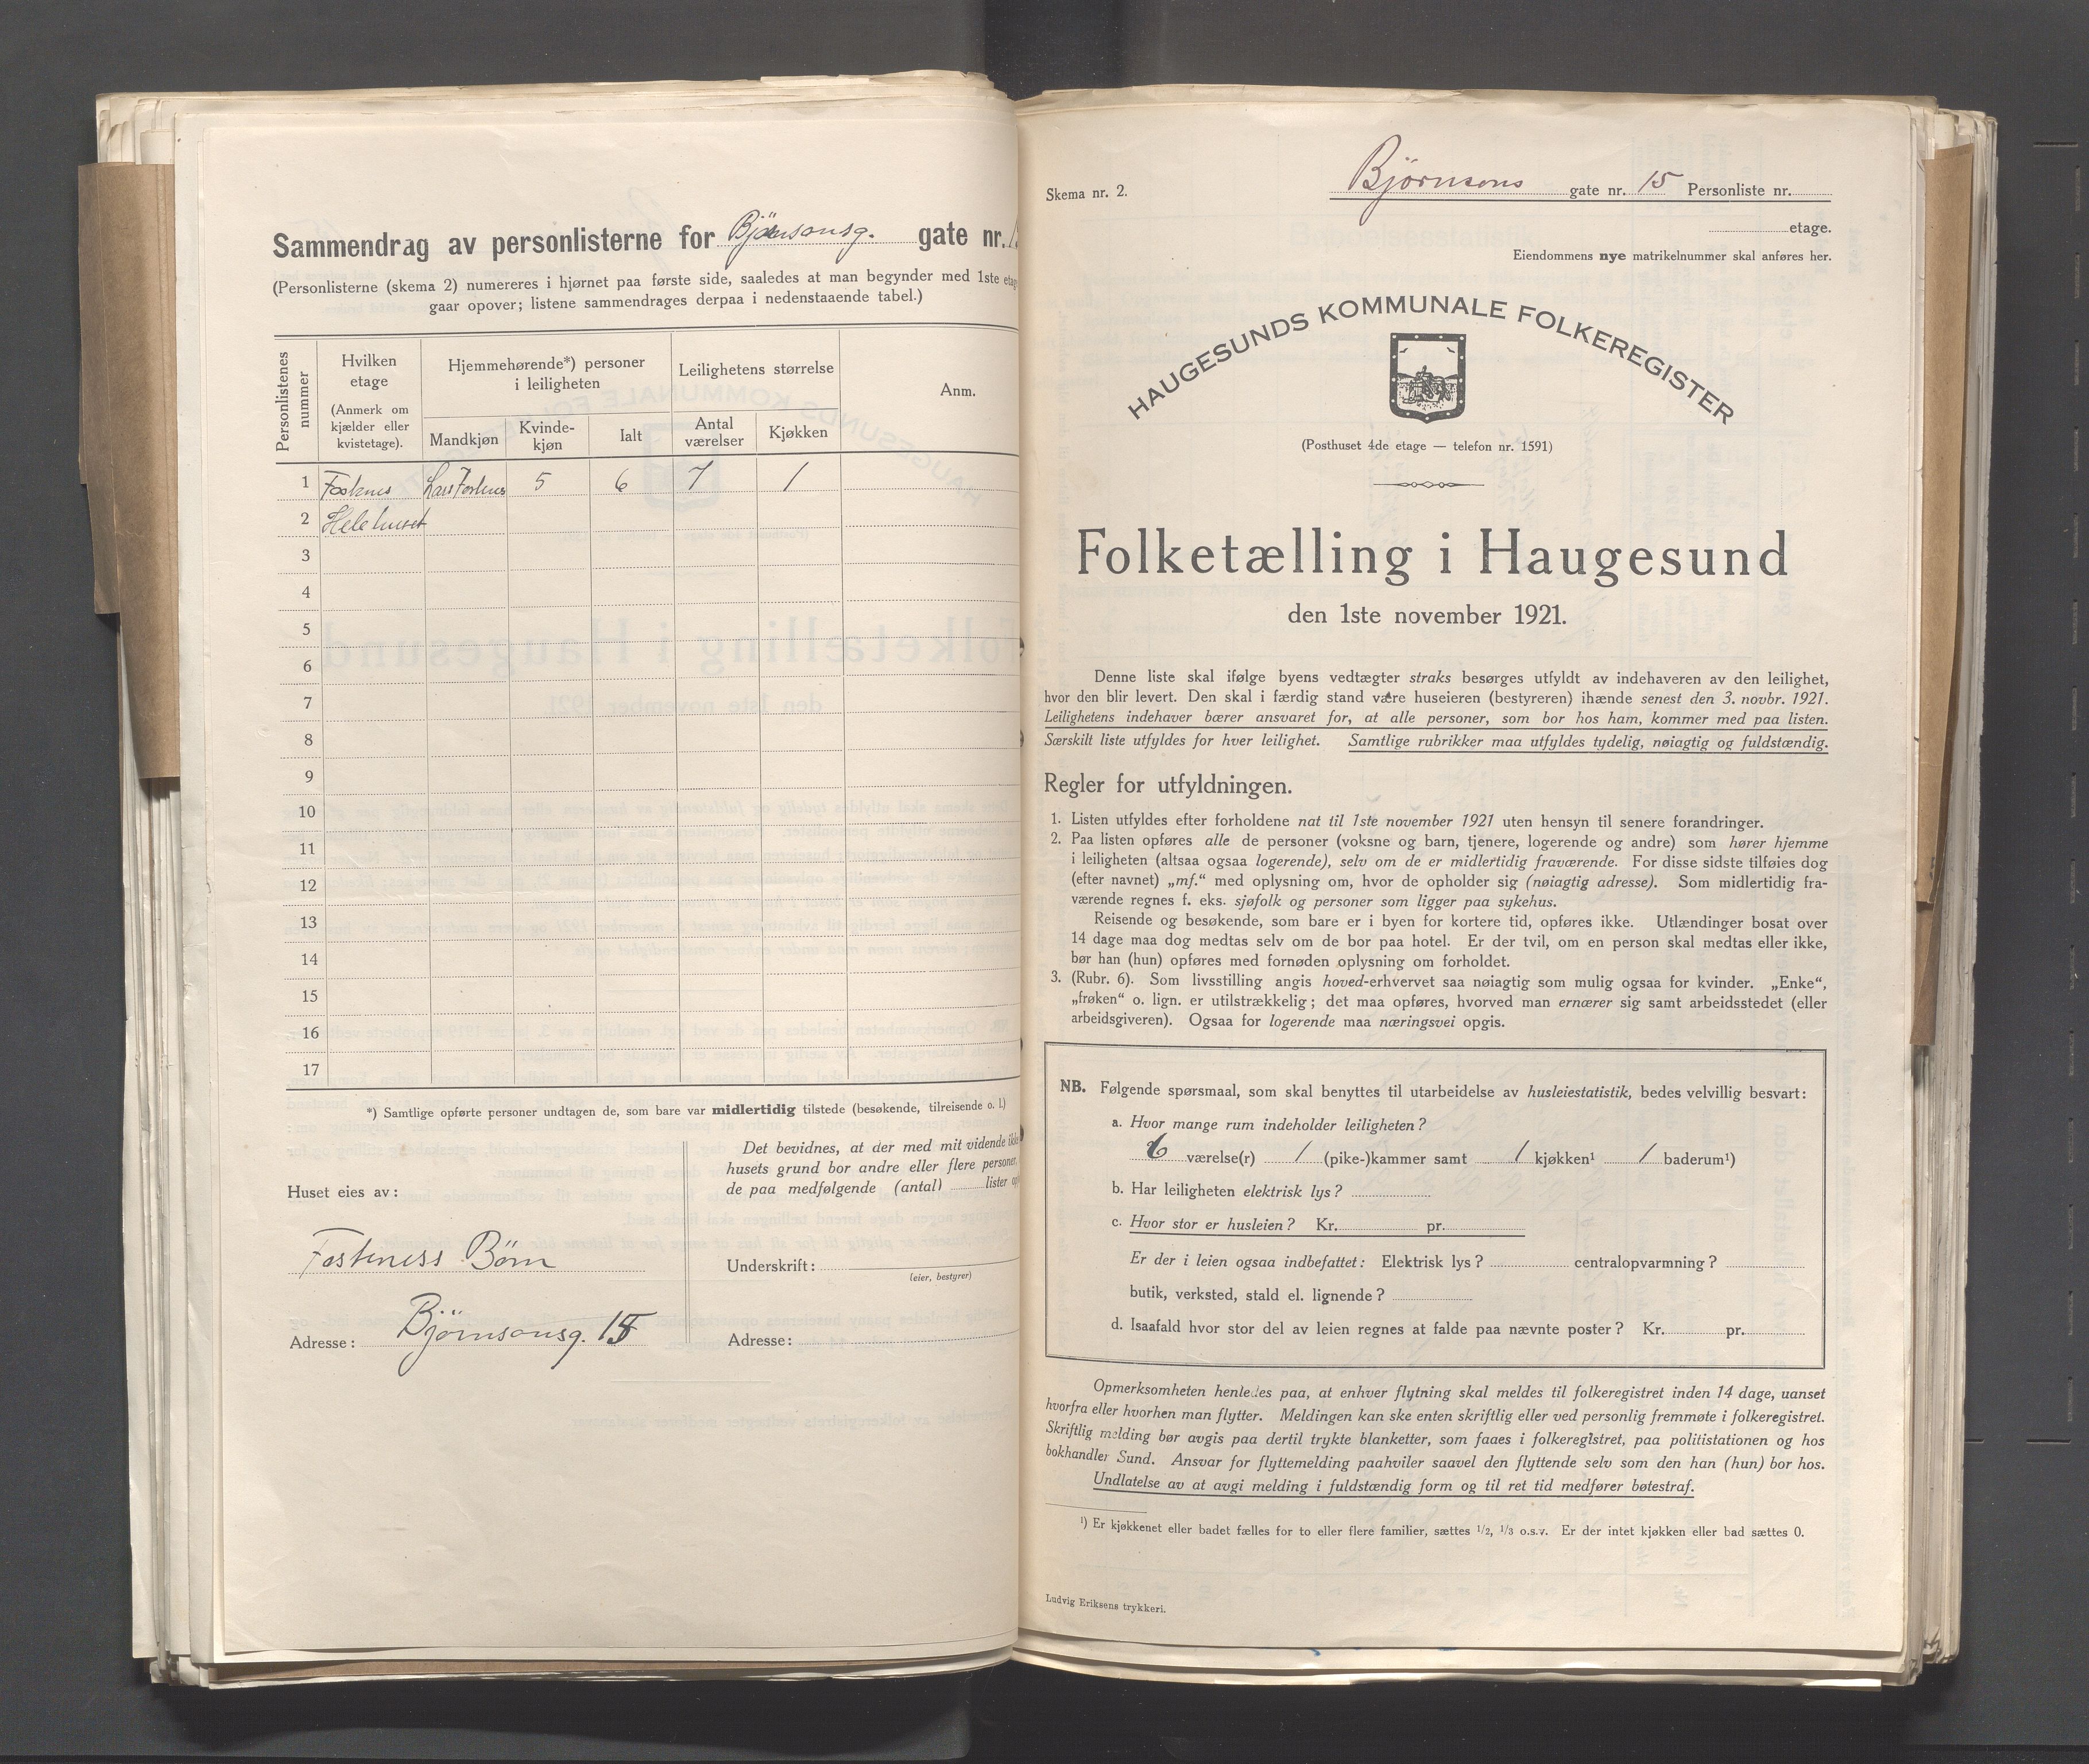 Sammendrag av personlisterne for Björnsonsg. gate nr.
(Personlisterne (skema 2) numereres i hjørnet paa første side, saaledes at man begynder med 1ste
gaar opover; listene sammendrages derpaa i nedenstaaende tabel.)
Personlistenes nummer
Hvilken etage
(Anmerk om kjælder eller kvistetage).
Hjemmehørende*) personer i leiligheten
Leilighetens størrelse
Anm.
Mandkjøn
Kvinde-kjøn
Ialt
Antal værelser
Kjøkken
1 Fosknes 5 6 7 1
2 Hele huset
3
4
5
6
7
8
9
10
11
12
13
14
15
16
17
*) Samtlige opførte personer undtagen de, som bare var midlertidig tilstede (besøkende, tilreisende o. l.)
Det bevidnes, at der med mit vidende
husets grund bor andre eller flere personer,
de paa medfølgende (antal) lister
Huset eies av:
Foskness Börn
Underskrift:
(eier, bestyrer)
Adresse: Björnsonsg. 15
Adresse:
Skema nr. 2.
Björnsons gate nr. 15 Personliste nr.
etage.
Eiendommens nye matrikelnummer skal anføres her.
HAUGESUNDS KOMMUNALE FOLKEREGISTER
(Posthuset 4de etage — telefon nr. 1591)
Folketælling i Haugesund
den 1ste november 1921.
Denne liste skal ifølge byens vedtægter straks besørges utfyldt av indehaveren av den leilighet,
hvor den blir levert. Den skal i færdig stand være huseieren (bestyreren) ihænde senest den 3. novbr. 1921.
Leilighetens indehaver bærer ansvaret for, at alle personer, som bor hos ham, kommer med paa listen.
Særskilt liste utfyldes for hver leilighet. Samtlige rubrikker maa utfyldes tydelig, nøiagtig og fuldstændig.
Regler for utfyldningen.
1. Listen utfyldes efter forholdene nat til 1ste november 1921 uten hensyn til senere forandringer.
2. Paa listen opføres alle de personer (voksne og barn, tjenere, logerende og andre) som hører hjemme
i leiligheten (altsaa ogsaa logerende), selv om de er midlertidig fraværende. For disse sidste tilføies dog
(efter navnet) „mf.“ med oplysning om, hvor de opholder sig (nøiagtig adresse). Som midlertidig fra-
værende regnes f. eks. sjøfolk og personer som ligger paa sykehus.
Reisende og besøkende, som bare er i byen for kortere tid, opføres ikke. Utlændinger bosat over
14 dage maa dog medtas selv om de bor paa hotel. Er der tvil, om en person skal medtas eller ikke,
bør han (hun) opføres med fornøden oplysning om forholdet.
3. (Rubr. 6). Som livsstilling angis hoved-erhvervet saa nøiagtig som mulig ogsaa for kvinder. „Enke“,
„frøken“ o. lign. er utilstrækkelig; det maa opføres, hvorved man ernærer sig samt arbeidsstedet (eller
arbeidsgiveren). Ogsaa for logerende maa næringsvei opgis.
NB. Følgende spørsmaal, som skal benyttes til utarbeidelse av husleiestatistik, bedes velvillig besvart:
a. Hvor mange rum indeholder leiligheten?
6 værelse(r) 1 (pike-)kammer samt 1 kjøkken¹ 1 baderum¹)
b. Har leiligheten elektrisk lys?
c. Hvor stor er husleien? Kr. pr.
Er der i leien ogsaa indbefattet: Elektrisk lys? centralopvarmning?
butik, verksted, stald el. lignende?
d. Isaafald hvor stor del av leien regnes at falde paa nævnte poster? Kr. pr.
Opmerksomheten henledes paa, at enhver flytning skal meldes til folkeregistret inden 14 dage, uanset
hvorfra eller hvorhen man flytter. Meldingen kan ske enten skriftlig eller ved personlig fremmøte i folkeregistret.
Skriftlig melding bør avgis paa dertil trykte blanketter, som faaes i folkeregistret, paa politistationen og hos
bokhandler Sund. Ansvar for flyttemelding paahviler saavel den flyttende selv som den han (hun) bor hos.
Undlatelse av at avgi melding i fuldstændig form og til ret tid medfører bøtestraf.
¹) Er kjøkkenet eller badet fælles for to eller flere familier, sættes 1/2, 1/3 o.s.v. Er der intet kjøkken eller bad sættes 0.
Ludvig Eriksens trykkeri.